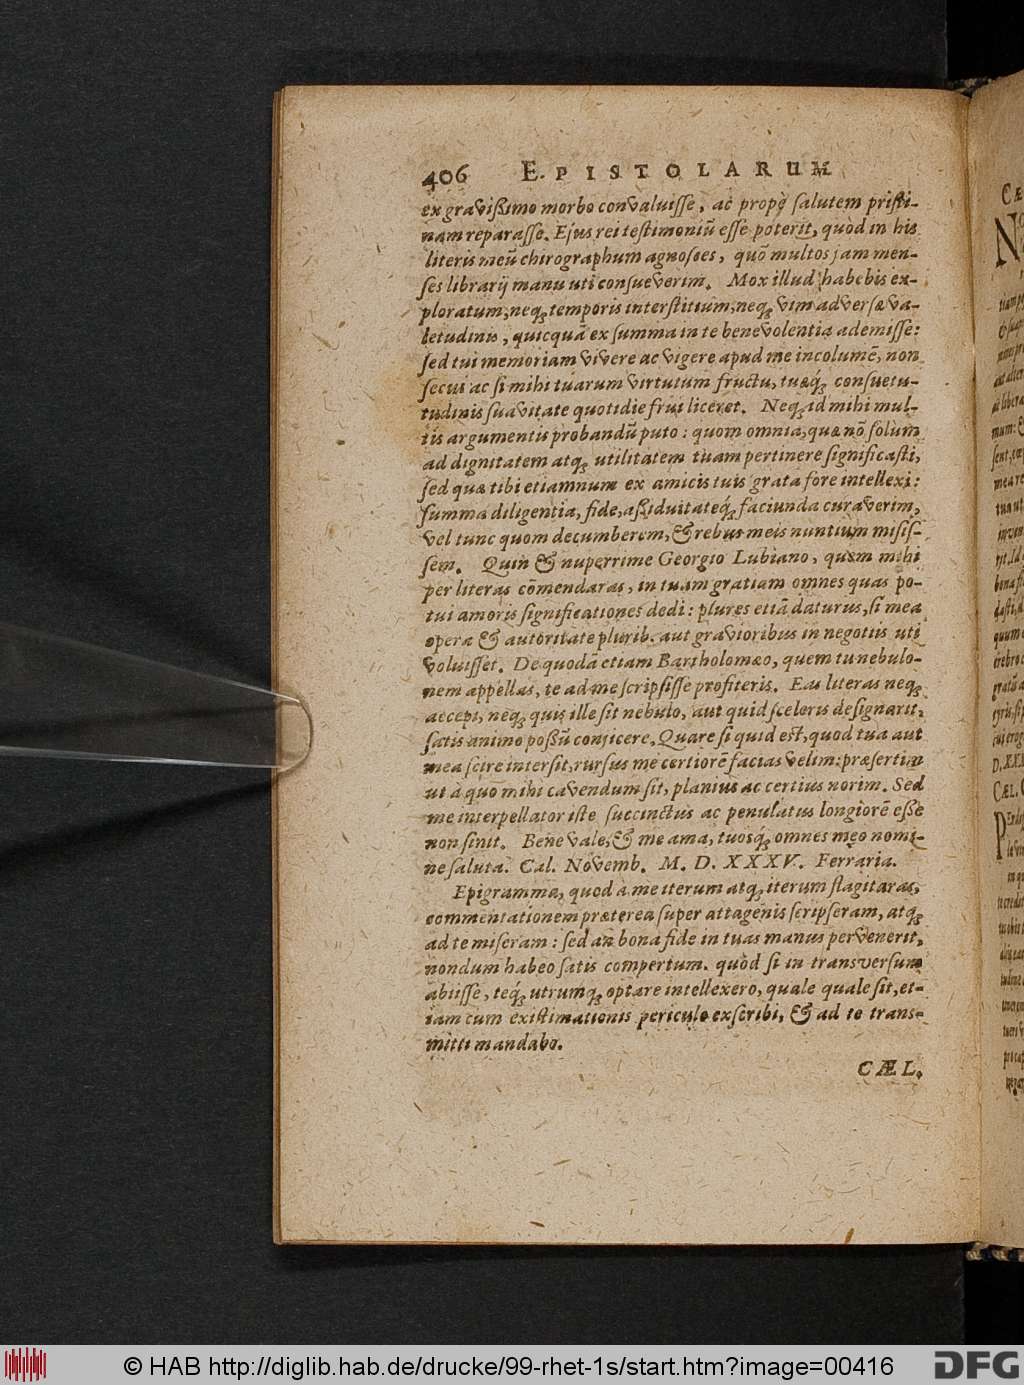 406 EPISTOLARUM
ex gravißimo morbo convaluiſſe, ac propè ſalutem priſti-
nam reparaſſe. Ejus rei teſtimoniũ eſſe poterit, quòd in his
literis meũ chirographum agnoſces, quō multos jam men-
ſes librarij manu uti conſueverim. Mox illud habebis ex-
ploratum, neqꝫ temporis interſtitium, neqꝫ vim adverſæ va-
letudinis, quicquã ex ſumma in te benevolentia ademiſſe:
ſed tui memoriam vivere ac vigere apud me incolumẽ, non
ſecus ac ſi mihi tuarum virtutum fructu, tuæqꝫ conſuetu-
tudinis ſuavitate quotidie frui liceret. Neqꝫ id mihi mul-
tis argumentis probandũ puto: quom omnia, quæ nō ſolum
ad dignitatem atqꝫ utilitatem tuam pertinere ſignificaſti,
ſed quæ tibi etiamnum ex amicis tuis grata fore intellexi:
ſumma diligentia, fide, aßiduitateqꝫ facienda curaverim,
vel tunc quom decumberem, & rebus meis nuntium miſiſ-
ſem. Quin & nuperrime Georgio Lubiano, quem mihi
per literas cōmendaras, in tuam gratiam omnes quas po-
tui amoris ſignificationes dedi: plures etiã daturus, ſi mea
opera & autoritate plurib. aut gravioribus in negotiis uti
voluiſſet. De quodã etiam Bartholomæo, quem tu nebulo-
nem appellas, te ad me ſcripſiſſe profiteris. Eas literas neqꝫ
accepi, neqꝫ quis ille ſit nebulo, aut quid ſceleris deſignarit,
ſatis animo poßũ conjicere. Quare ſi quid eſt, quod tua aut
mea ſcire interſit, rurſus me certiorẽ facias velim: præſertim
ut à quō mihi cavendum ſit, planius ac certius norim. Sed
me interpellator iſte ſuccinctus ac penulatus longiorẽ eſſe
non ſinit. Bene vale, & me ama, tuosqꝫ omnes meo nomi-
ne ſaluta. Cal. Novemb. M. D. XXXV. Ferraria.
Epigramma, quod à me iterum atqꝫ iterum flagitaras,
commentationem præterea ſuper attagenis ſcripſeram, atqꝫ
ad te miſeram: ſed an bona fide in tuas manus pervenerit,
nondum habeo ſatis compertum. quòd ſi in transverſum
abiiſſe, teqꝫ utrumqꝫ optare intellexero, quale quale ſit, et-
iam cum exiſtimationis periculo exſcribi, & ad te trans-
mitti mandabo.
CÆL.
© HAB http://diglib.hab.de/drucke/99-rhet-1s/start.htm?image=00416
DFG